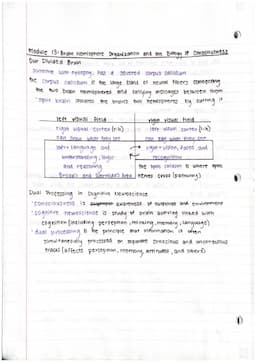 Module 13: Brain Hemisphere Organization and the Biology of Consciousness
Our Divided Brain
someone with epilepsy has a severed corpus callosum
the corpus callosum is the large band of neural fibers connecting
the two brain hemispheres and carrying messages between them
split brain isolates the brain's two hemispheres by cutting it
left visual field
right visual field
right visual cortex
left visual cortex
left - language and
right - vision, faces, and
understanding, logic
recognition
and reasoning
the optic chiasm is where optic
Broca's and Wernicke's area
nerves cross (pathway)
Dual Processing in Cognitive Neuroscience
consciousness is awareness of ourselves and environment
cognitive neuroscience is study of brain activity linked with
cognition (including perception, thinking, memory, language)
dual processing is the principle that information is often
simultaneously processed on separate conscious and unconscious
tracks (affects perception, memory, attitudes, and others)